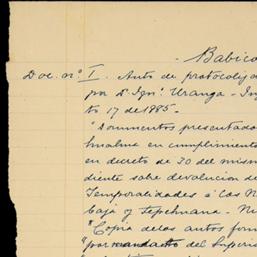 - Babico
Doc. nº I. Auto de protocolizac
por Dn Igno. Uranga - In
to 17 de 1985. -
"Documentos presentados
en cumplimiento
en decreto de 30 del mism
diente sobre devolucion de
Temporalidades á las N
baja y Tepehuana. - N
"Copia de los autos form
"por mandacto del Superio